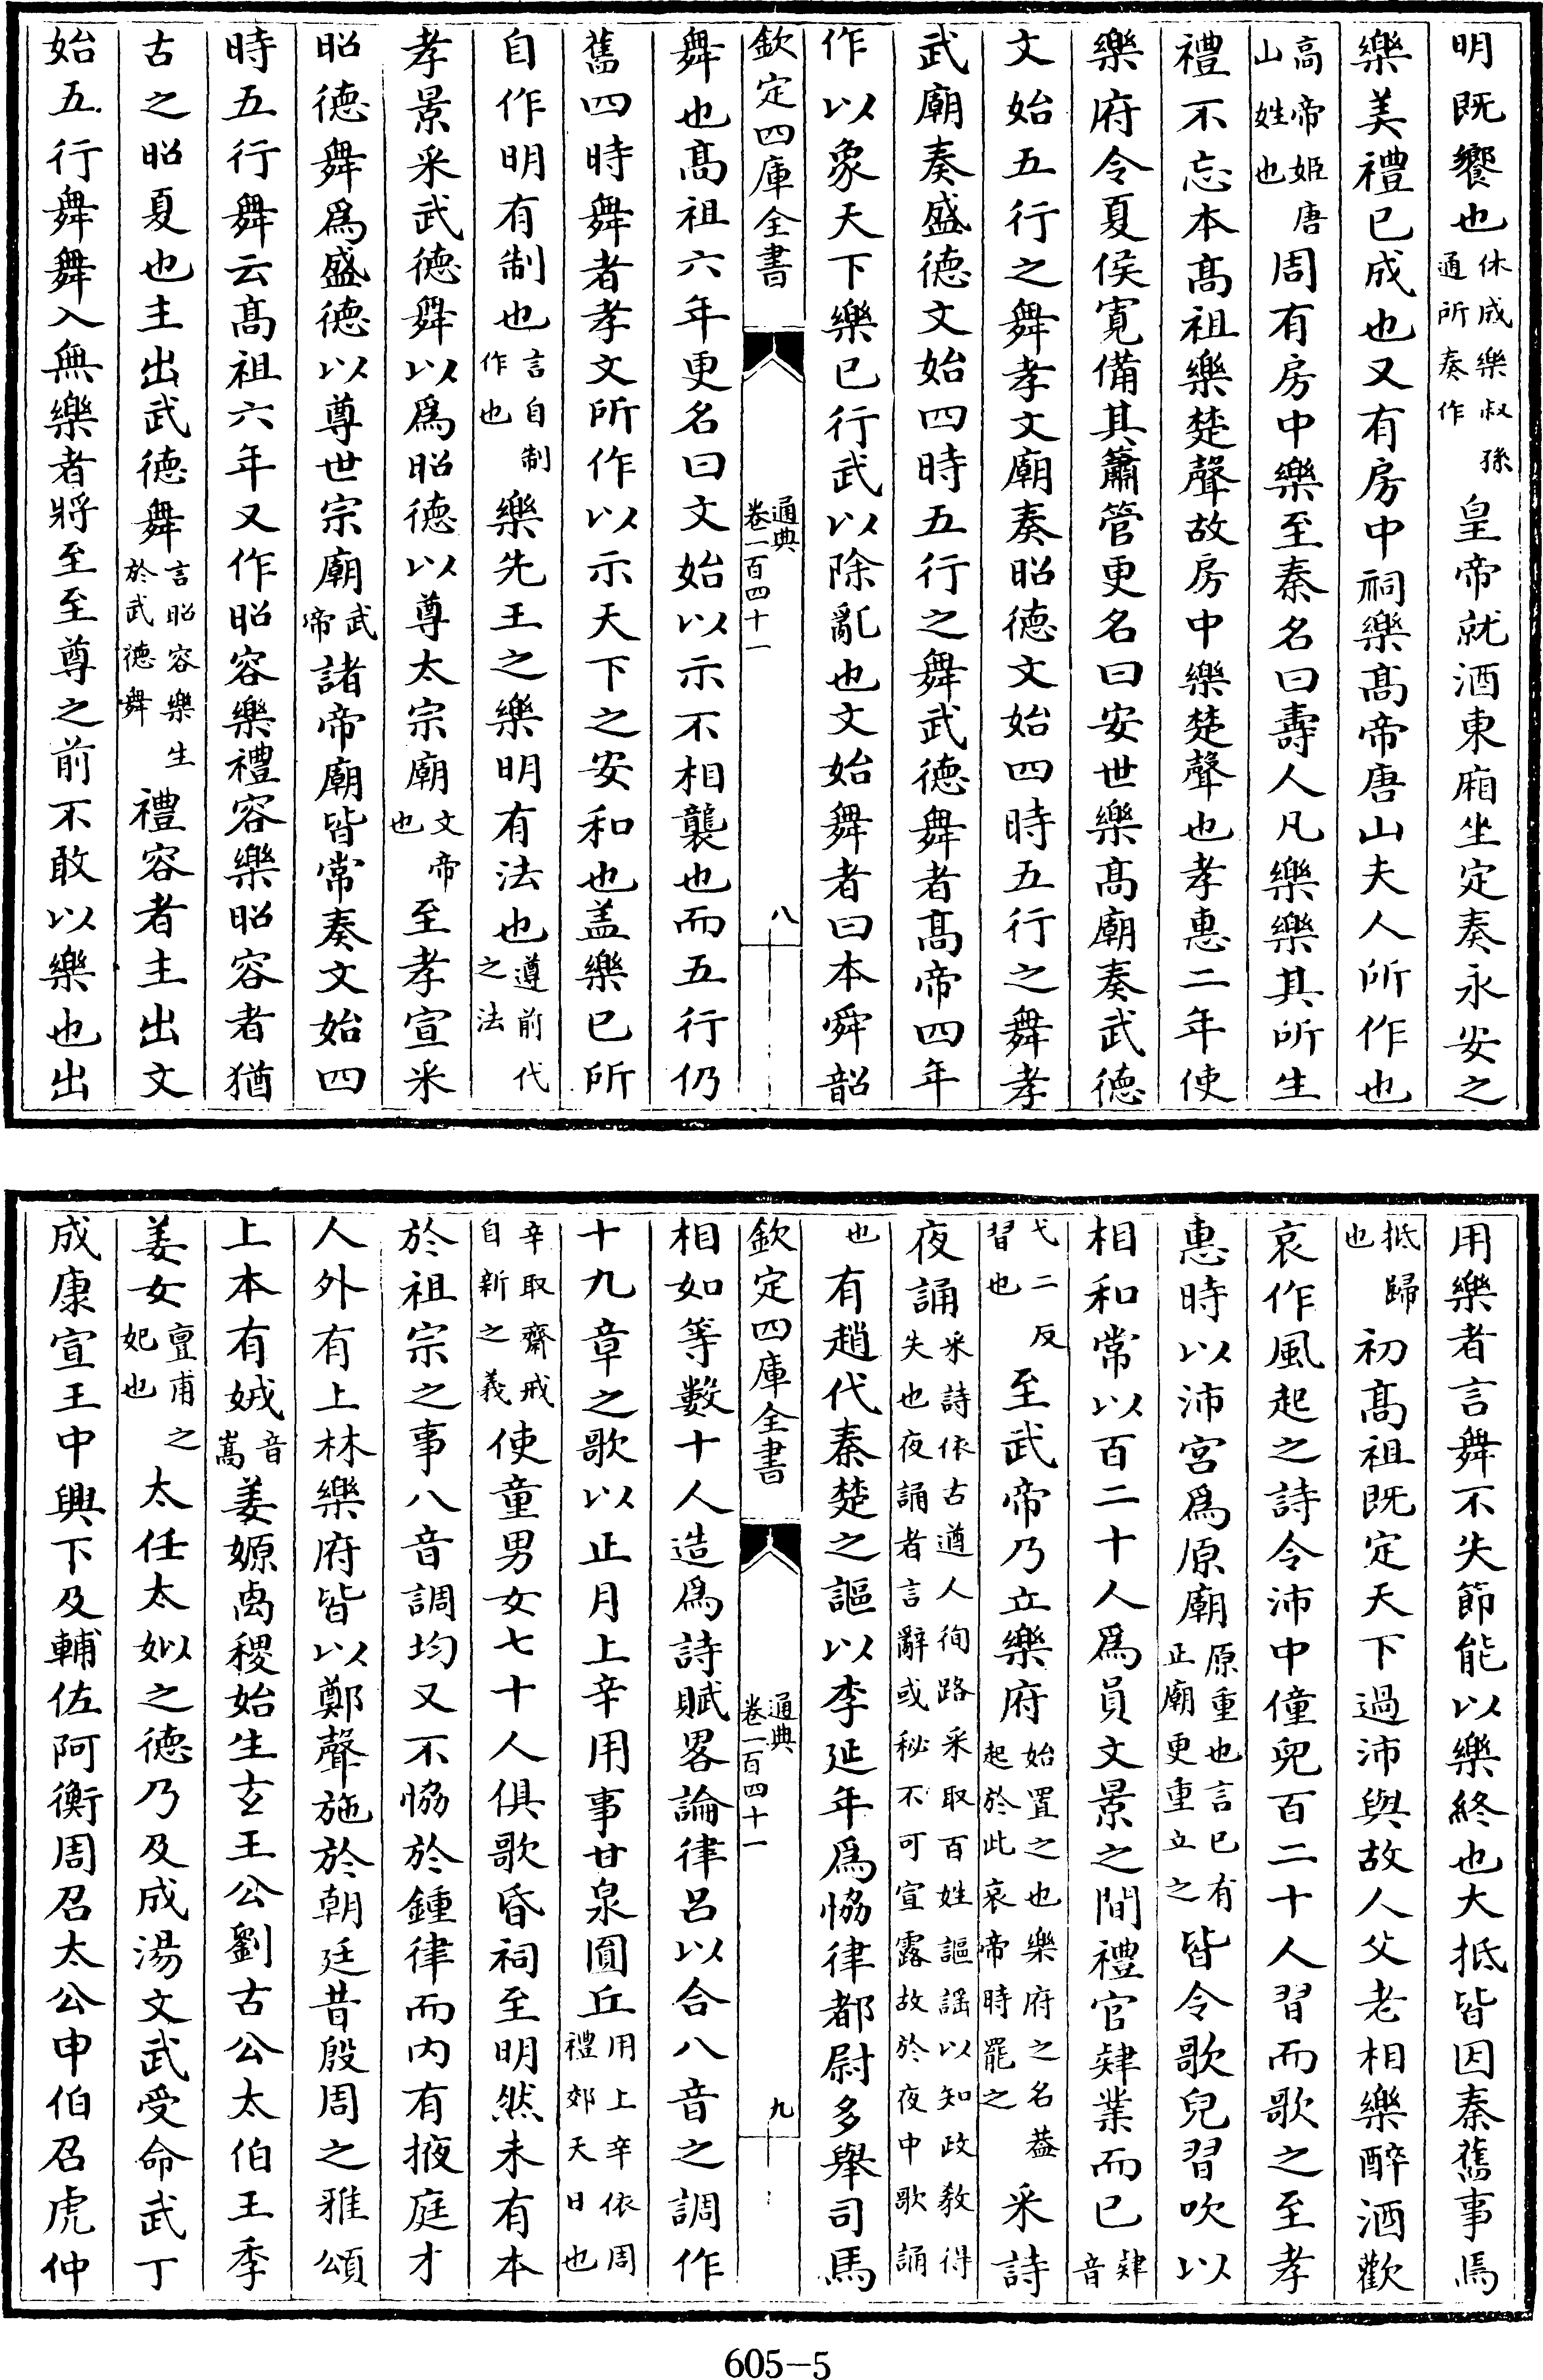 明既饗也休成樂叔孫通所奏作皇帝就酒東廂坐定奏永安之
樂美禮已成也又有房中祠樂髙帝唐山夫人所作也
高帝姬唐山姓也周有房中樂至秦名曰壽人凡樂樂其所生
禮不忘本髙祖樂楚聲故房中樂楚聲也孝惠二年使
樂府令夏侯寛備其簫管更名曰安世樂髙廟奏武德
文始五行之舞孝文廟奏昭德文始四時五行之舞孝
武廟奏盛德文始四時五行之舞武德舞者髙帝四年
作以象天下樂已行武以除亂也文始舞者曰本舜韶
欽定四庫全書 通典卷一百四十一 八
舞也髙祖六年更名曰文始以示不相襲也而五行仍
舊四時舞者孝文所作以示天下之安和也盖樂已所
自作明有制也言自制作也樂先王之樂明有法也遵前代之法
孝景采武德舞以爲昭德以尊太宗廟文帝也至孝宣采
昭德舞爲盛德以尊世宗廟武帝諸帝廟皆常奏文始四
時五行舞云髙祖六年又作昭容樂禮容樂昭容者猶
古之昭夏也主出武德舞言昭容樂生於武德舞禮容者主出文
始五行舞舞入無樂者將至至尊之前不敢以樂也出
用樂者言舞不失節能以樂終也大抵皆因秦舊事焉
抵歸也初髙祖既定天下過沛與故人父老相樂醉酒歡
哀作風起之詩令沛中僮兒百二十人習而歌之至孝
惠時以沛宮爲原廟原重也言已有正廟更重立之皆令歌兒習吹以
相和常以百二十人爲員文景之間禮官肄業而已肄音
弋二反習也至武帝乃立樂府始置之也樂府之名葢起於此哀帝時罷之采詩
夜誦采詩依古遒人徇路采取百姓謳謡以知政敎得失也夜誦者言辭或秘不可宣露故於夜中歌誦
也有趙代秦楚之謳以李延年爲恊律都尉多舉司馬
欽定四庫全書 通典卷一百四十一 九
相如等數十人造爲詩賦畧論律呂以合八音之調作
十九章之歌以正月上辛用事甘泉圜丘用上辛依周禮郊天日也
辛取齋戒自新之義使童男女七十人俱歌昏祠至明然未有本
於祖宗之事八音調均又不恊於鍾律而内有掖庭才
人外有上林樂府皆以鄭聲施於朝廷昔殷周之雅頌
上本有娀音嵩姜嫄禼稷始生𤣥王公劉古公太伯王季
姜女亶甫之妃也太任太姒之德乃及成湯文武受命武丁
成康宣王中興下及輔佐阿衡周召太公申伯召虎仲
605-5